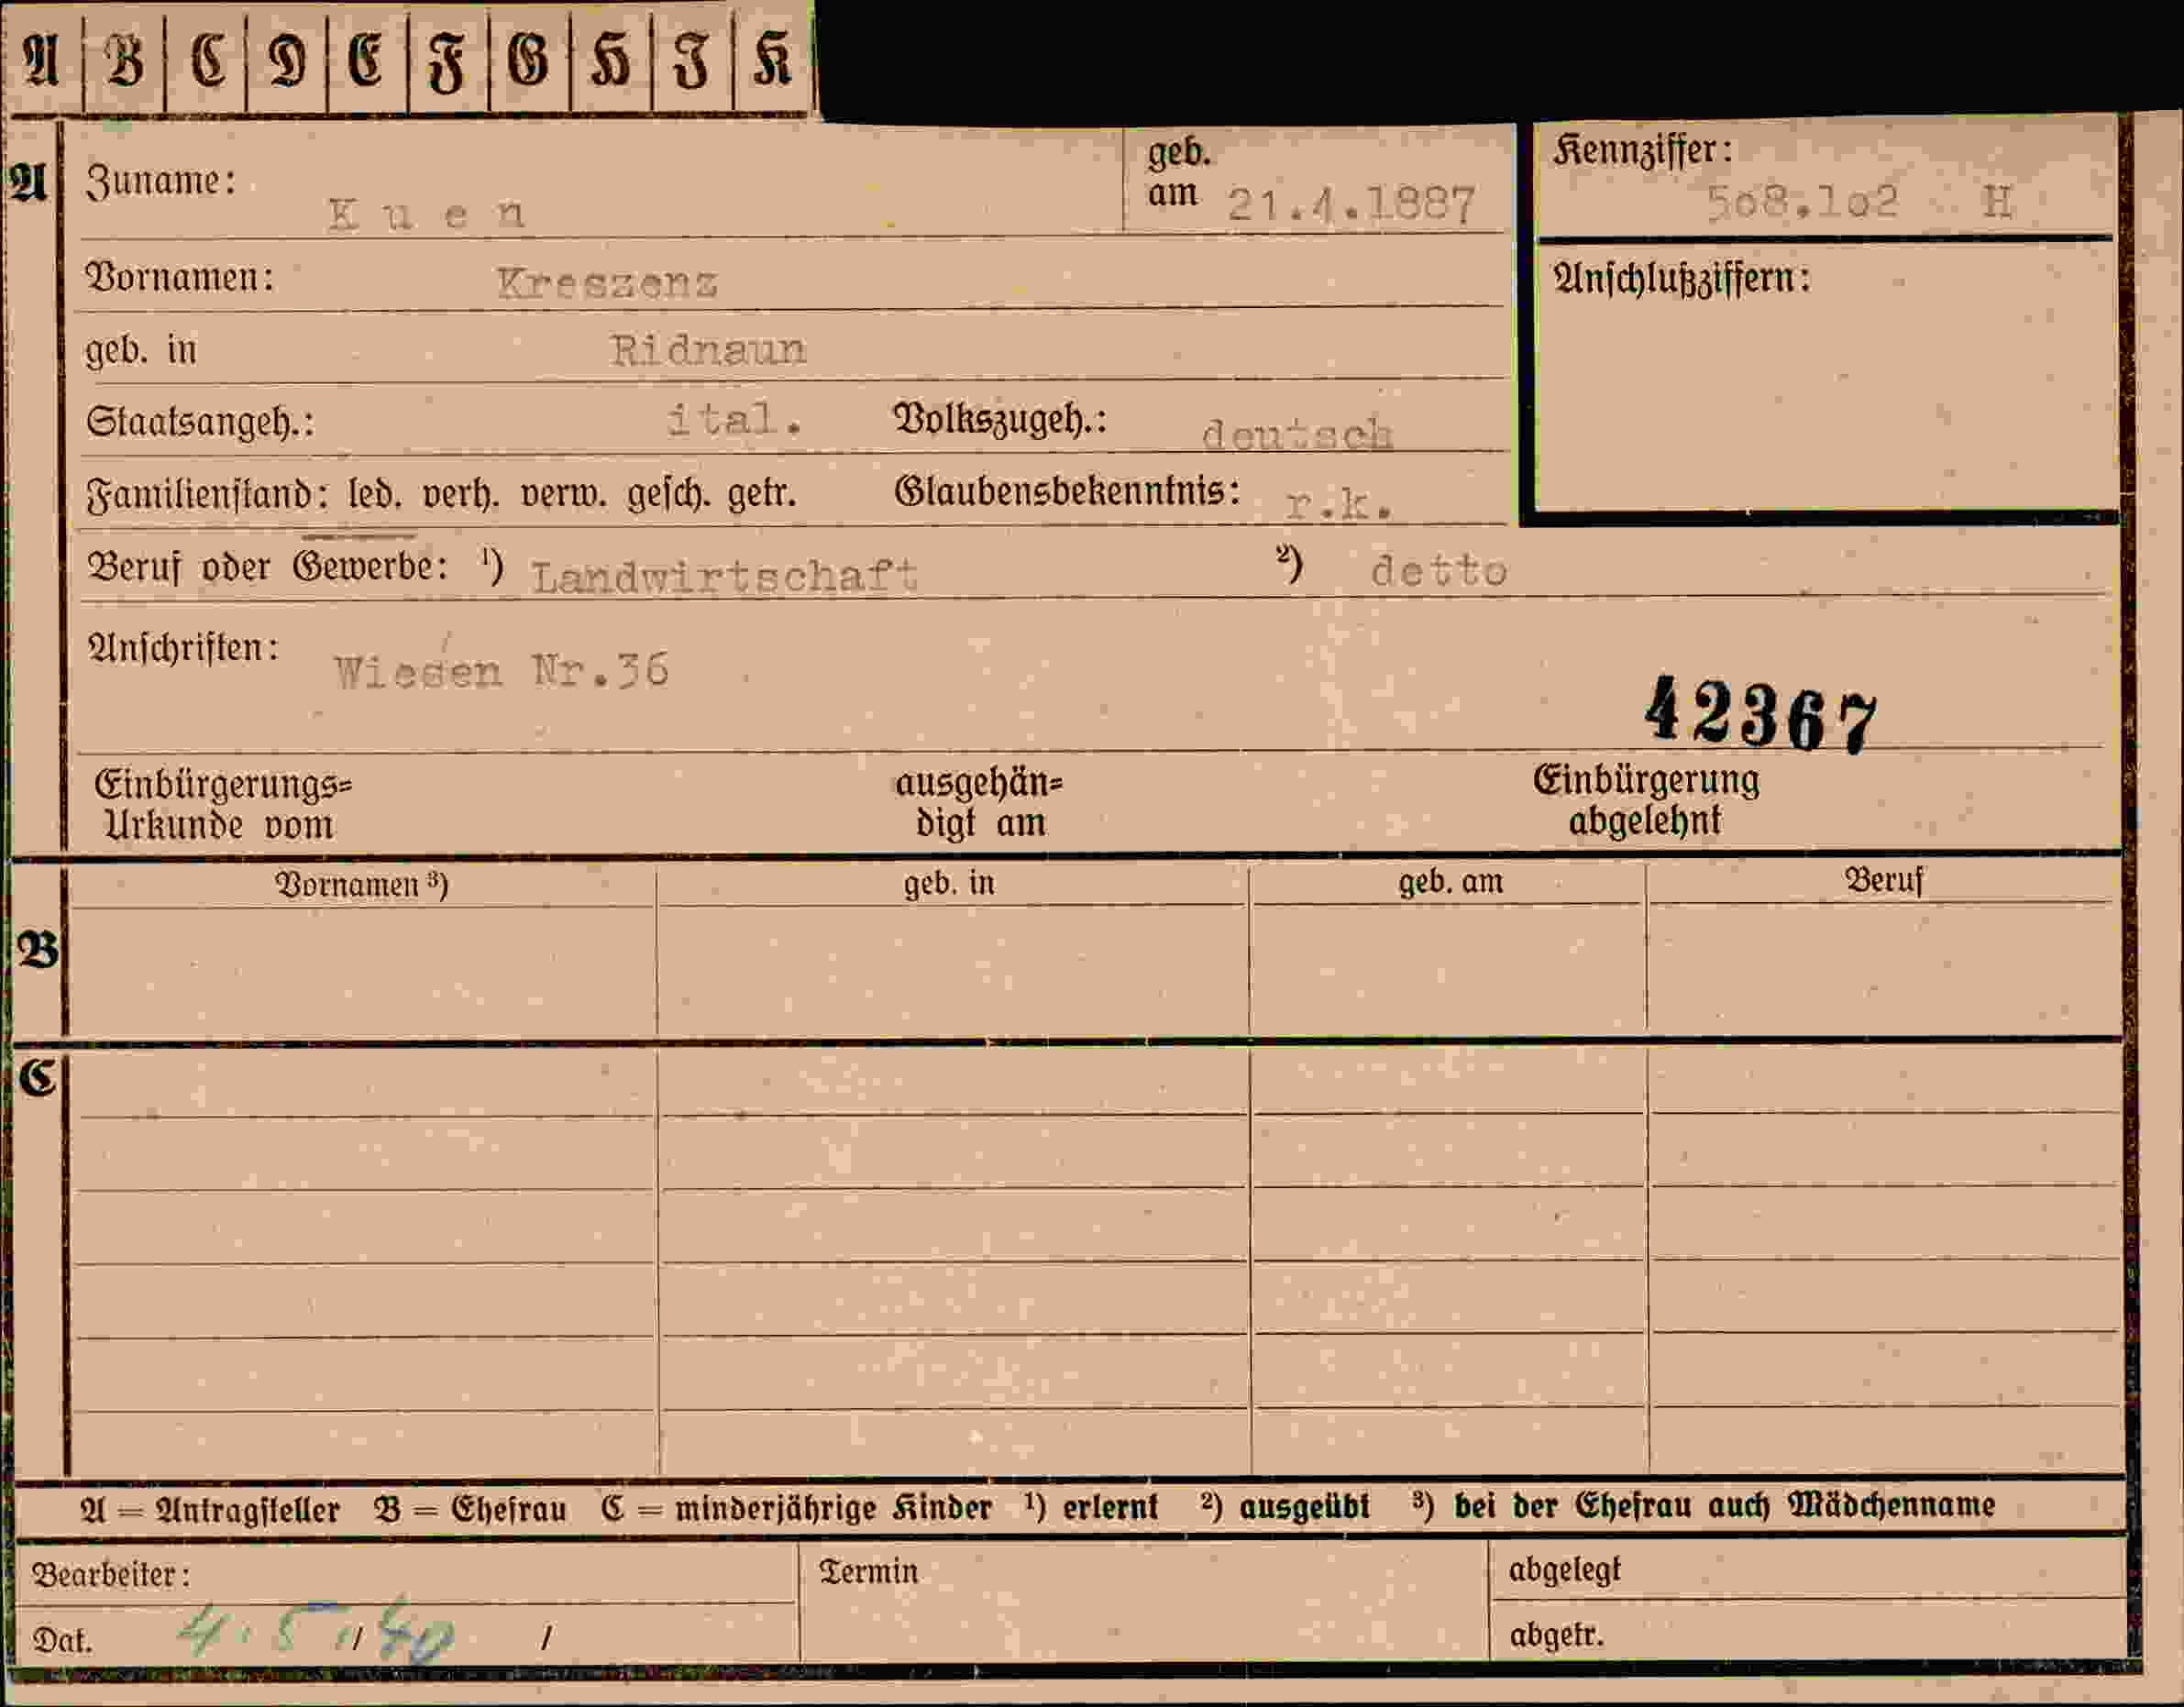 A B C D E F G H J K
A Zuname: Kuen geb. am 21.4.1887 Kennziffer: 5o8.1o2 H
Vornamen: Kreszenz Anschlußziffern:
geb. in Ridnaun
Staatsangeh.: ital. Volkszugeh.: deutsch
Familienstand: led. verh. verw. gesch. getr. Glaubensbekenntnis: r.k.
Beruf oder Gewerbe: ¹) Landwirtschaft ²) detto
Anschriften: Wiesen Nr.36
42367
Einbürgerungs= ausgehän= Einbürgerung
Urkunde vom digt am abgelehnt
Vornamen ³) geb. in geb. am Beruf
B
C
A = Antragsteller B = Ehefrau C = minderjährige Kinder ¹) erlernt ²) ausgeübt ³) bei der Ehefrau auch Mädchenname
Bearbeiter: Termin abgelegt
Dat. 4.5./40 / abgetr.